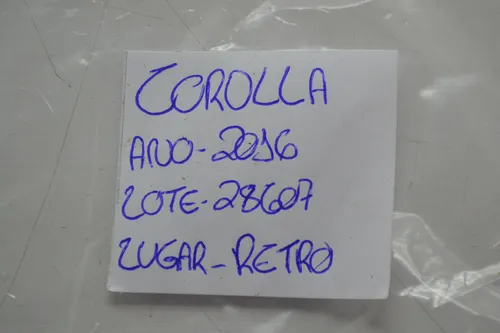 COROLLA
ANO-2016
LOTE-28607
LUGAR-RETRO